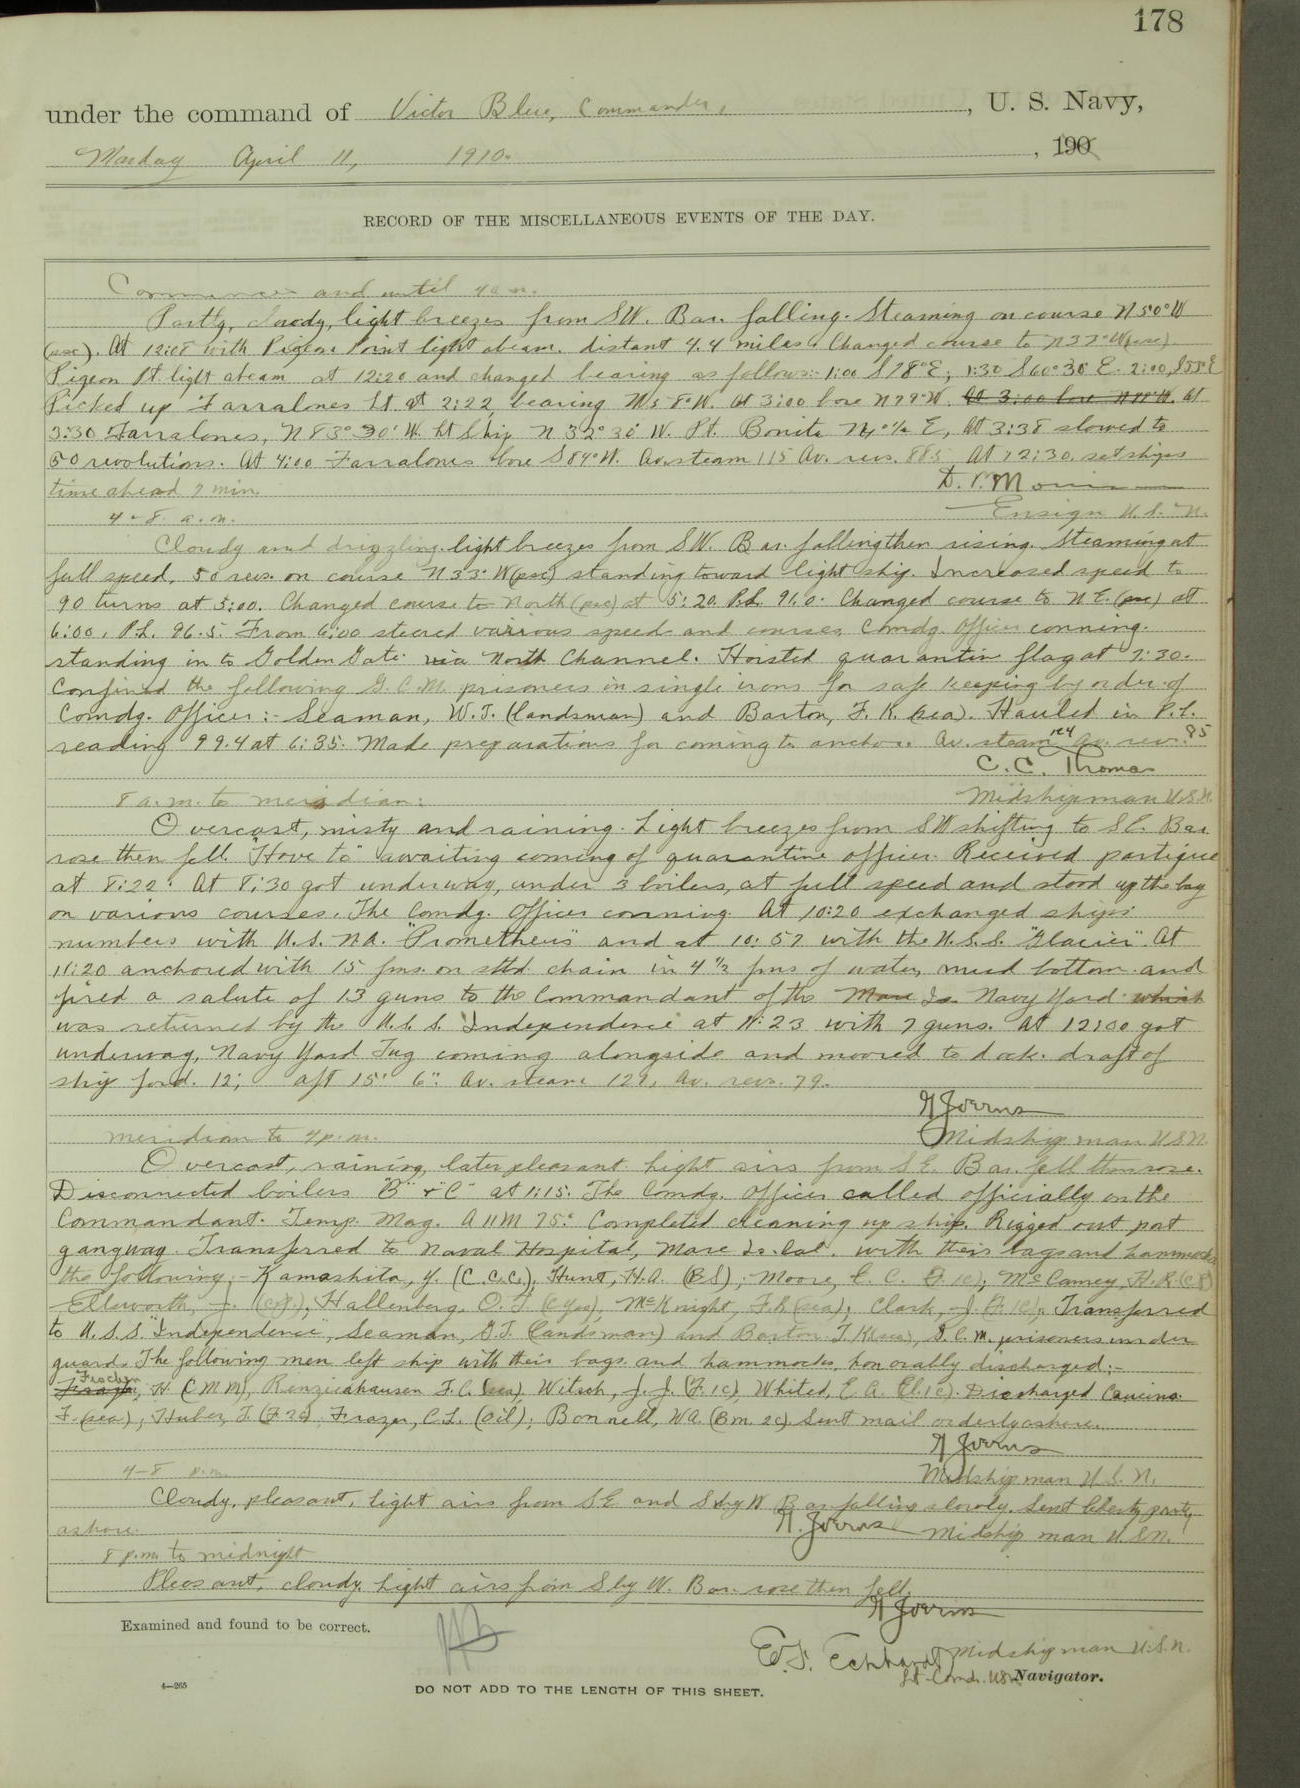 178
under the command of Victor Blue, Commander, , U. S. Navy,
Monday April 11, 1910. , 190
RECORD OF THE MISCELLANEOUS EVENTS OF THE DAY.
Commences and until 4 a.m.
Partly cloudy, light breezes from SW. Bar. falling. Steaming on course N 50° W
(psc). At 12:08 with Pigeon Point light abeam. distant 4.4 miles. Changed course to N 33° W (psc).
Pigeon Pt. light abeam at 12:20 and changed bearing as follows:- 1:00 S 78° E; 1:30 S 60° 30' E. 2:00, S 55° E
Picked up Farralones Lt. at 2:22, bearing N 58° W. At 3:00 bore N 79° W. At 3:00 bore N 79° W. At
3:30 Farralones, N 83° 30' W. Lt Ship N 32° 30' W. Pt. Bonita N E, At 3:38 slowed to
50 revolutions. At 4:00 Farralones bore S 84° W. Av. steam 115 Av. revs. 88.5 At 12:30 set ships
time ahead 7 min.
Ensign U.S.N.
4-8 a.m.
Cloudy and drizzling. light breezes from SW. Bar. falling then rising. Steaming at
full speed, 50 revs. on course N 33° W (psc) standing toward light ship. Increased speed to
90 turns at 5:00. Changed course to North (psc) at 5:20. P.L. 91.0. Changed course to N.E. (psc) at
6:00, P.L. 96.5. From 6:00 steered various speeds and courses, Comdg. Officer conning.
standing in to Golden Gate via North Channel. Hoisted quarantin flag at 7:30.
Confined the following G.C.M. prisoners in single irons for safe keeping by order of
Comdg. Officer:- Seaman, W.J. (landsman) and Barton, F.K. (sea). Hauled in P.L.
reading 99.4 at 6:35. Made preparations for coming to anchor. Av. steam 124 Av. rev. 85
C.C. Thomas
Midshipman U.S.N.
8 a.m. to meridian:
Overcast, misty and raining. Light breezes from SW shifting to SE. Bar.
rose then fell. "Hove to" awaiting coming of quarantine officer. Received partique
at 8:22. At 8:30 got underway, under 3 boilers, at full speed and stood up the bay
on various courses. The Comdg. Officer conning. At 10:20 exchanged ships
numbers with U.S. NA. "Prometheus" and at 10:57 with the U.S.S. "Glacier". At
11:20 anchored with 15 fms. on stbd. chain in 4 1/2 fms of water, mud bottom. and
fired a salute of 13 guns to the Commandant of the Mare Is. Navy Yard. which
was returned by the U.S.S. Independence at 11:23 with 7 guns. At 12:00 got
underway, Navy Yard Tug coming alongside and moored to dock. draft of
ship ford. 12; aft 15' 6". Av. steam 129, Av. revs. 79.
N Joerns
Midshipman U.S.N.
meridian to 4 p.m.
Overcast, raining, later pleasant. Light airs from SE. Bar. fell then rose.
Disconnected boilers "B" + "C" at 1:15. The Comdg. Officer called officially on the
Commandant. Temp. Mag. A 11 M 75.° Completed cleaning up ship. Rigged out port
gangway. Transferred to Naval Hospital, Mare Is. Cal. with their bags and hammocks
the following:- Kamashita, Y. (C.C.C.), Hunt, H.A. (BS); Moore, E.C. (F.1c); McCamey, H.R.
Ellsworth, J.; Hallenberg, O.T.; McKnight, F.R. (sea); Clark, J. (F.1c). Transferred
to U.S.S. "Independence", Seaman, G.J. (landsman) and Barton F.K. (sea), G.C.M. prisoners under
guard. The following men left ship with their bags and hammocks, honorably discharged:-
Fischer
H. (CMM), F.C. (sea), Witsch, J.J. (F.1c) Whited, E.A. (El.1c). Discharged
F. (sea); Huber, J. (F.2c); Frazer, C.L. (Oil); Bonnell, W.A. (Bm. 2c) Sent mail orderly ashore.
N Joerns
Midshipman U.S.N.
4-8 p.m.
Cloudy, pleasant, light airs from SE and S by W Bar. falling slowly. Sent liberty party
ashore.
N. Joerns Midshipman U.S.N.
8 p.m. to midnight
Pleasant, cloudy. Light airs from S by W. Bar. rose then fell.
N Joerns
Midshipman U.S.N.
Examined and found to be correct.
E.S. Eckhardt
Lt-Comdr. USN Navigator.
4—265
DO NOT ADD TO THE LENGTH OF THIS SHEET.